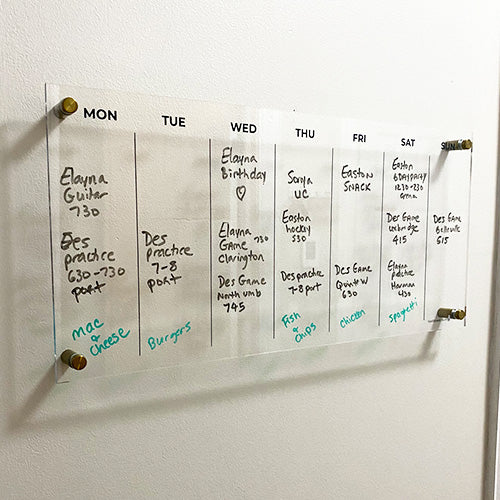 MON
Elayna
Guitar
730
Des
practice
630-730
port
mac
&
cheese
TUE
Des
practice
7-8
port
Burgers
WED
Elayna
Birthday
♡
Elayna
GAME 730
Clarington
Des Game
North umb
745
THU
Soraya
UC
Easton
hockey
530
Des practice
7-8 port
Fish
&
chips
FRI
EASTON
SNACK
Des Game
Quinte W
630
chicken
SAT
Easton
BDAYPARTY
1230-230
Des Game
uxbridge
415
Elayna
practice
Harman
430
spaghetti
SUN
Des Game
Belleville
615